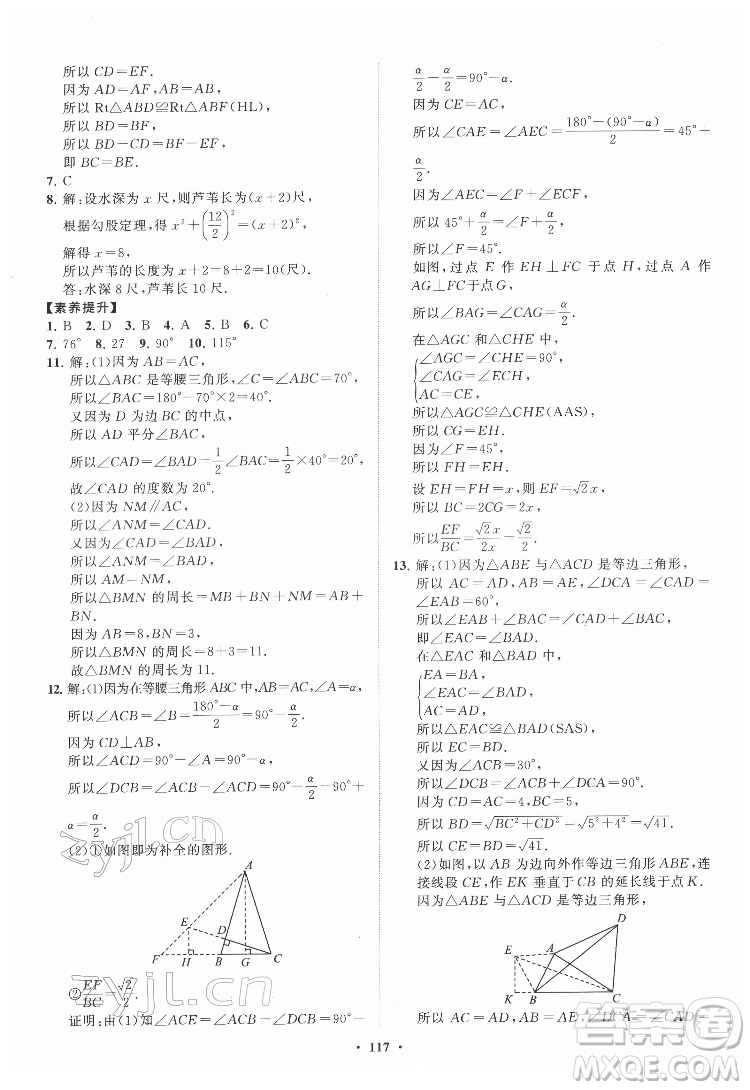 所以 CD=EF.
因为 AD=AF,AB=AB,
所以 Rt△ABD≌Rt△ABF(HL),
所以 BD=BF,
所以 BD-CD=BF-EF,
即 BC=BE.
7. C
8. 解:设水深为 x 尺,则芦苇长为(x+2)尺,
根据勾股定理,得 x²+(12/2)²=(x+2)²,
解得 x=8,
所以芦苇的长度为 x+2=10(尺).
答:水深 8 尺,芦苇长 10 尺.
【素养提升】
1. B 2. D 3. B 4. A 5. B 6. C
7. 76° 8. 27 9. 90° 10. 115°
11. 解:(1)因为 AB=AC,
所以△ABC 是等腰三角形,∠C=∠ABC=70°,
所以∠BAC=180°-70°×2=40°.
又因为 D 为边 BC 的中点,
所以 AD 平分∠BAC,
所以∠CAD=∠BAD=1/2∠BAC=1/2×40°=20°,
故∠CAD 的度数为 20°.
(2)因为 NM∥AC,
所以∠AMN=∠CAD.
又因为∠BAD=∠CAD,
所以∠AMN=∠BAD,
所以 AN=MN.
所以△BMN 的周长=MB+BN+MN=AB+
BN.
因为 AB=8,BN=3,
所以△BMN 的周长=8+3=11.
故△BMN 的周长为 11.
12. 解:(1)因为在等腰三角形 ABC 中,∠A=α,
所以∠ACB=∠B=(180°-α)/2=90°-α/2.
因为 CD⊥AB,
所以∠ACD=90°-∠A=90°-α,
所以∠DCB=∠ACB-∠ACD=90°-α/2-90°+
α=α/2.
(2)①如图即为补全的图形.
A
E
D
F H B G C
②EF/BC=√2/2.
证明:由(1)知∠ACE=∠ACB-∠DCB=90°-
α/2-α/2=90°-α.
因为 CE=AC,
所以∠CAE=∠AEC=(180°-(90°-α))/2=45°+
α/2.
因为∠AEC=∠F+∠ECF,
所以 45°+α/2=∠F+α/2,
所以∠F=45°.
如图,过点 E 作 EH⊥FC 于点 H,过点 A 作
AG⊥FC于点 G,
所以∠BAG=∠CAG=α/2.
在△AGC 与△CHE 中,
∠AGC=∠CHE=90°,
∠CAG=∠ECH,
AC=CE,
所以△AGC≌△CHE(AAS),
所以 CG=EH.
因为∠F=45°,
所以 FH=EH.
设 EH=FH=CG=x,则 EF=√2x,
所以 BC=2CG=2x,
所以EF/BC=√2x/2x=√2/2.
13. 解:(1)因为△ABE 与△ACD 是等边三角形,
所以 AC=AD,AB=AE,∠DCA=∠CAD=
∠EAB=60°,
所以∠EAB+∠BAC=∠CAD+∠BAC,
即∠EAC=∠BAD.
在△EAC 与△BAD 中,
EA=BA,
∠EAC=∠BAD,
AC=AD,
所以△EAC≌△BAD(SAS),
所以 EC=BD.
又因为∠ACB=30°,
所以∠DCB=∠ACB+∠DCA=90°.
因为 CD=AC=4,BC=5,
所以 BD=√BC²+CD²=√5²+4²=√41.
所以 CE=BD=√41.
(2)如图,以 AB 为边向外作等边三角形 ABE,连
接线段 CE,作 EK 垂直于 CB 的延长线于点 K.
因为△ABE 与△ACD 是等边三角形,
D
E A
K B C
所以 AC=AD,AB=AE,∠DCA=∠CAD=
· 117 ·
zyjl.cn
zyjl.cn
答案圈
MXQE.COM